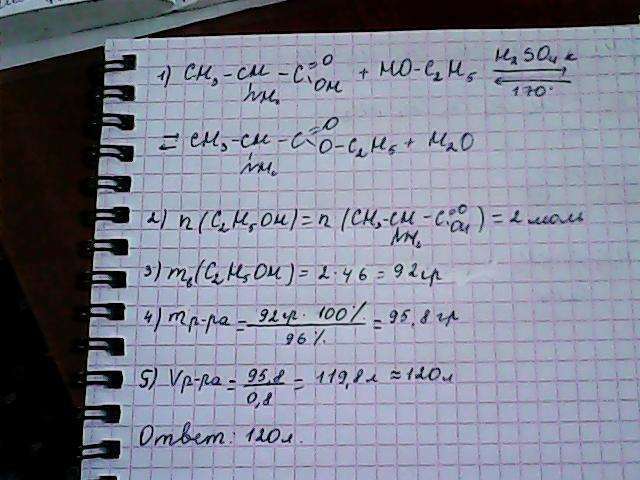 1) CH₃-CH-C=O + HO-C₂H₅ H₂SO₄ к
NH₂ OH 170°
⇄ CH₃-CH-C=O O-C₂H₅ + H₂O
NH₂
2) n(C₂H₅OH) = n(CH₃-CH-C=O OH) = 2 моль
NH₂
3) mв(C₂H₅OH) = 2·46 = 92гр
4) mр-ра = 92гр·100% / 96% = 95,8 гр
5) Vр-ра = 95,8 / 0,8 = 119,8 л ≈ 120 л
Ответ: 120 л.